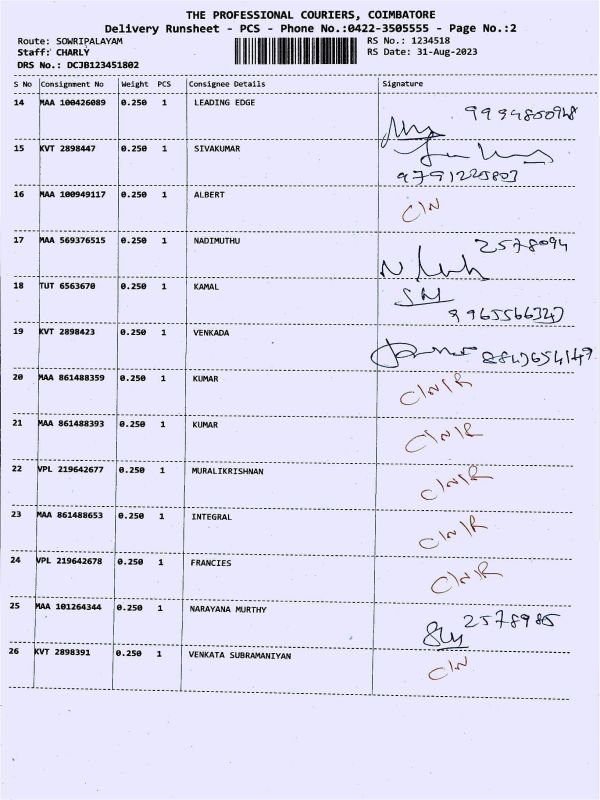 THE PROFESSIONAL COURIERS, COIMBATORE
Delivery Runsheet - PCS - Phone No.:0422-3505555 - Page No.:2
Route: SOWRIPALAYAM RS No.: 1234518
Staff: CHARLY RS Date: 31-Aug-2023
DRS No.: DCJB123451802
S No Consignment No Weight PCS Consignee Details Signature
14 MAA 100426089 0.250 1 LEADING EDGE
15 KVT 2898447 0.250 1 SIVAKUMAR
9791225803
16 MAA 100949117 0.250 1 ALBERT C/N
17 MAA 569376515 0.250 1 NADIMUTHU 2578094
18 TUT 6563670 0.250 1 KAMAL
19 KVT 2898423 0.250 1 VENKADA
20 MAA 861488359 0.250 1 KUMAR C/N/R
21 MAA 861488393 0.250 1 KUMAR C/N/R
22 VPL 219642677 0.250 1 MURALIKRISHNAN C/N/R
23 MAA 861488653 0.250 1 INTEGRAL C/N/R
24 VPL 219642678 0.250 1 FRANCIES C/N/R
25 MAA 101264344 0.250 1 NARAYANA MURTHY 2578985
26 KVT 2898391 0.250 1 VENKATA SUBRAMANIYAN C/N